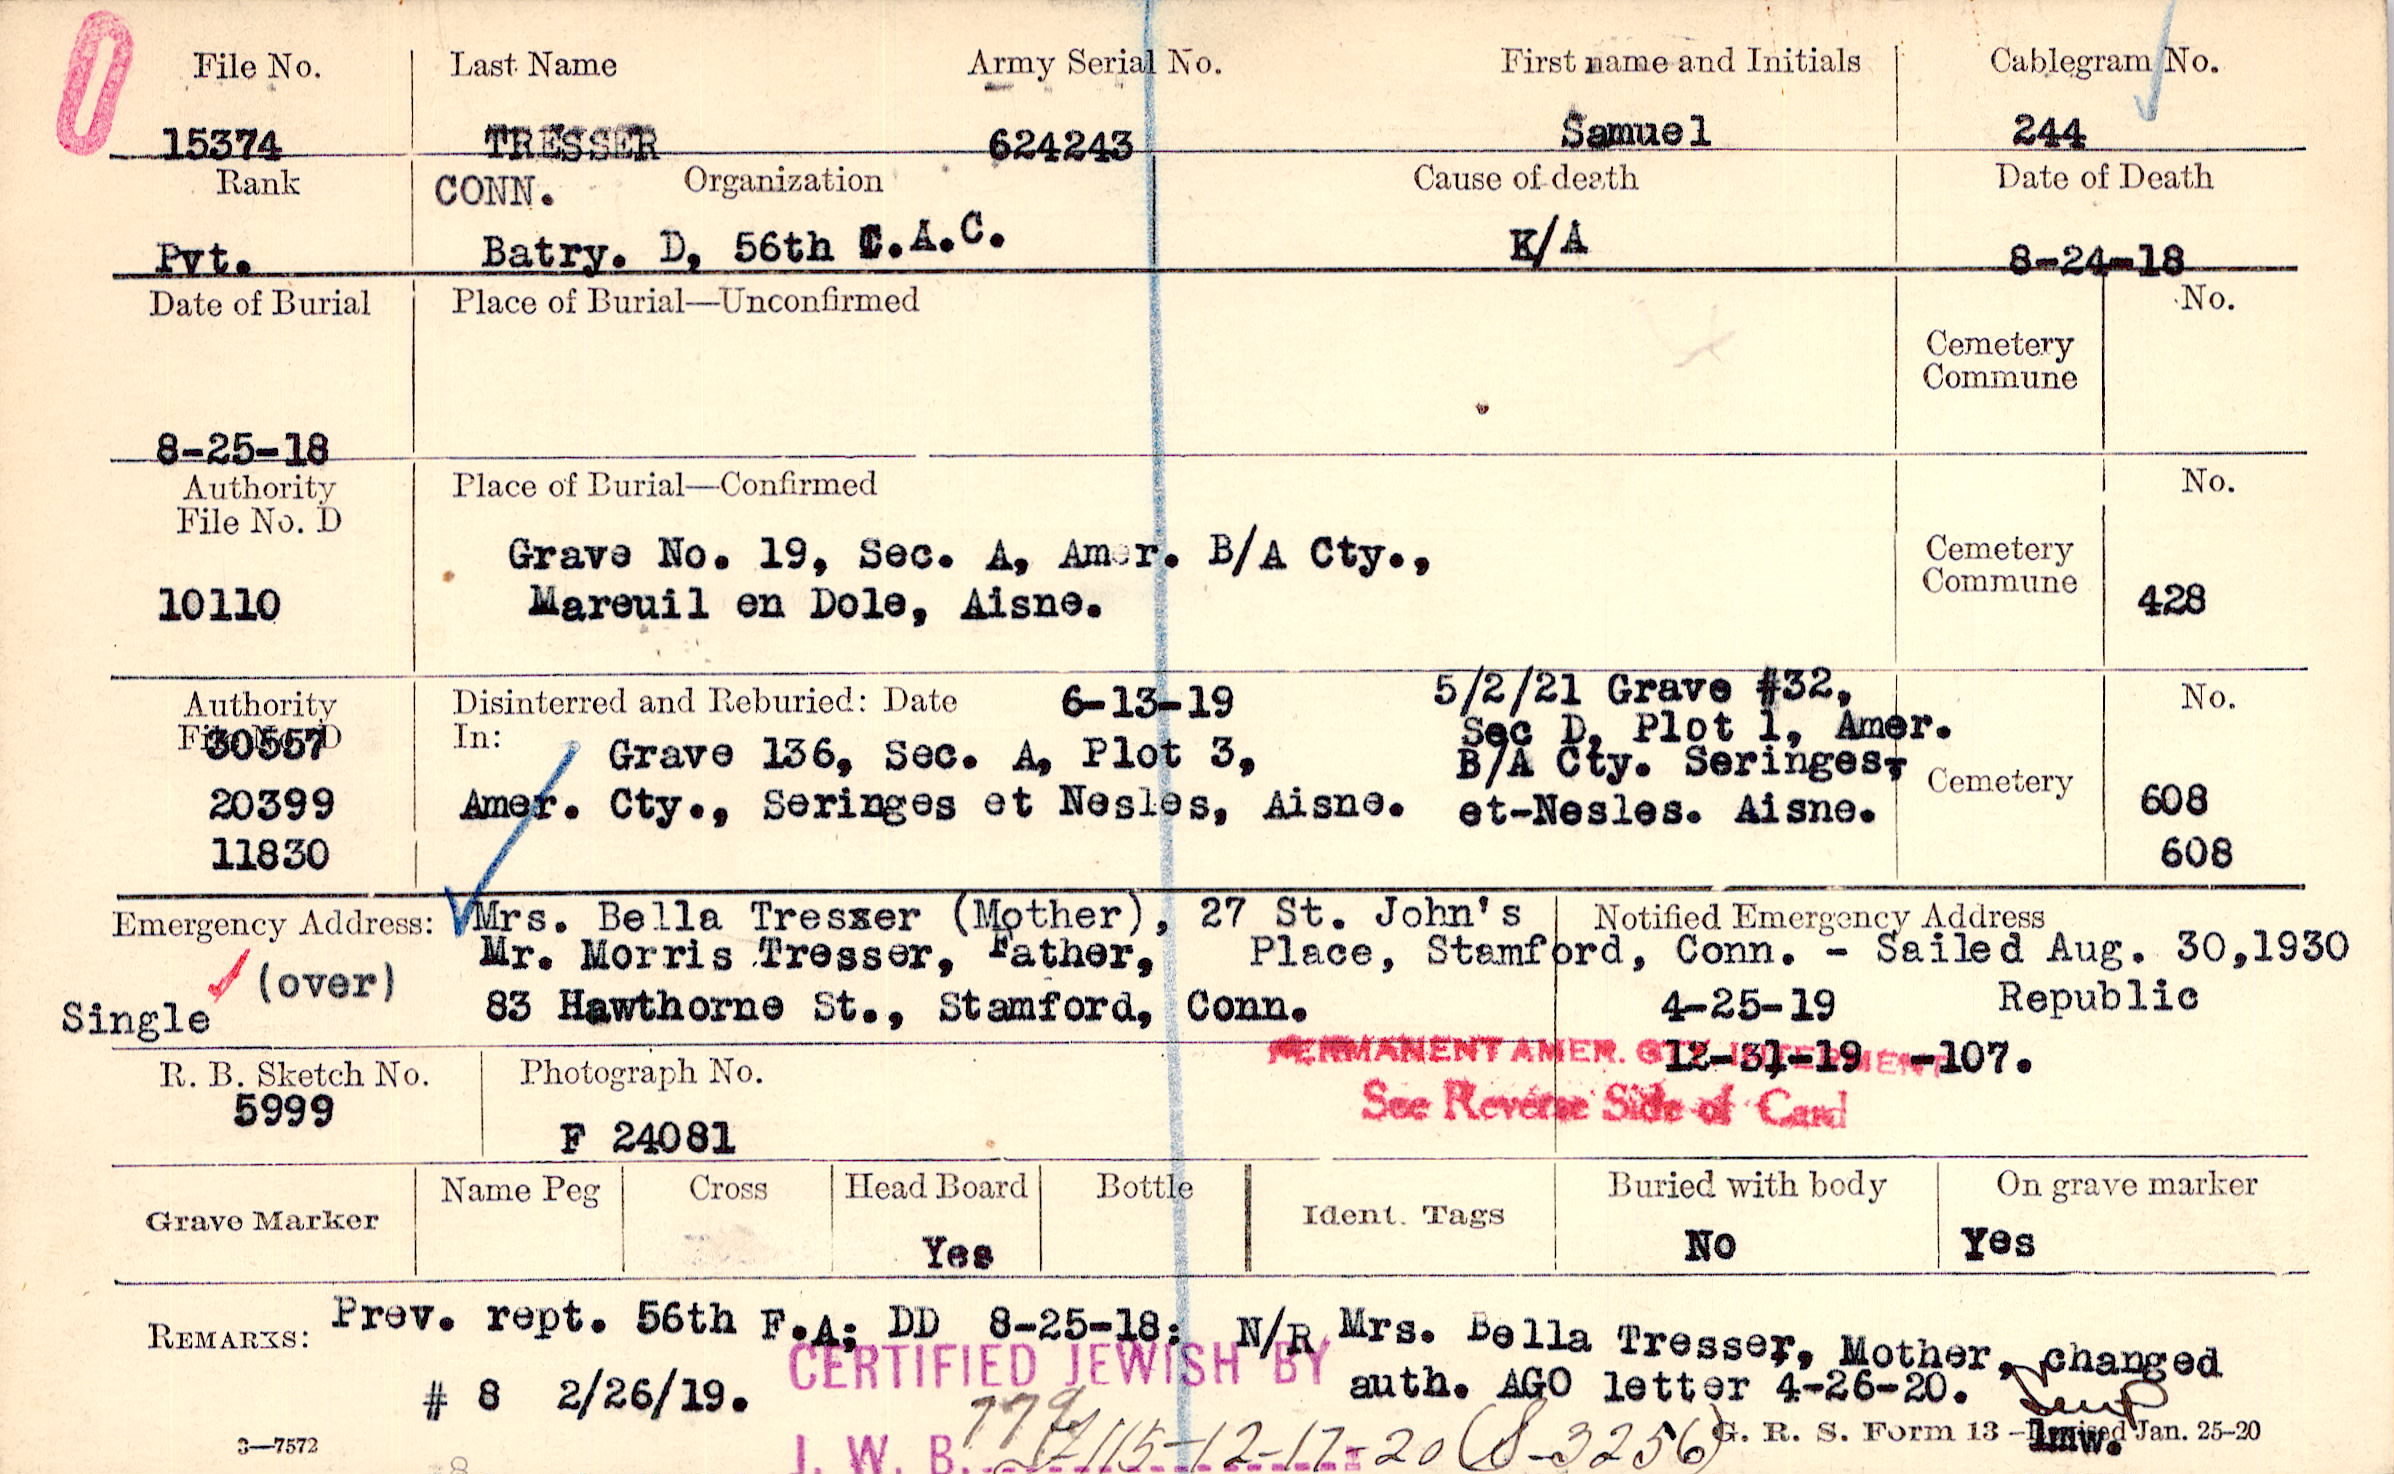 File No. Last Name Army Serial No. First name and Initials Cablegram No.
15374 TRESSER 624243 Samuel 244
Rank CONN. Organization Cause of death Date of Death
Pvt. Batry. D, 56th C.A.C. K/A 8-24-18
Date of Burial Place of Burial—Unconfirmed No.
Cemetery
Commune
8-25-18
Authority Place of Burial—Confirmed No.
File No. D
Grave No. 19, Sec. A, Amer. B/A Cty., Cemetery
10110 Mareuil en Dole, Aisne. Commune 428
Authority Disinterred and Reburied: Date 6-13-19 5/2/21 Grave #32, No.
File No. D 30557 In: Grave 136, Sec. A, Plot 3, Sec D, Plot 1, Amer.
B/A Cty. Seringes- Cemetery
20399 Amer. Cty., Seringes et Nesles, Aisne. et-Nesles. Aisne. 608
11830 608
Emergency Address: Mrs. Bella Tresxer (Mother), 27 St. John's Notified Emergency Address
Mr. Morris Tresser, Father, Place, Stamford, Conn. - Sailed Aug. 30,1930
(over)
Single 83 Hawthorne St., Stamford, Conn. 4-25-19 Republic
PERMANENT AMER. CTY. INTERMENT 12-31-19 -107.
R. B. Sketch No. Photograph No.
5999 See Reverse Side of Card
F 24081
Name Peg Cross Head Board Bottle Buried with body On grave marker
Grave Marker Ident. Tags
Yes No Yes
REMARKS: Prev. rept. 56th F.A; DD 8-25-18; N/R Mrs. Bella Tresser, Mother, changed
CERTIFIED JEWISH BY
# 8 2/26/19. auth. AGO letter 4-26-20.
J. W. B. 115-12-17-20 (S-3256)
3—7572 G. R. S. Form 13 —Revised Jan. 25-20
lmw.